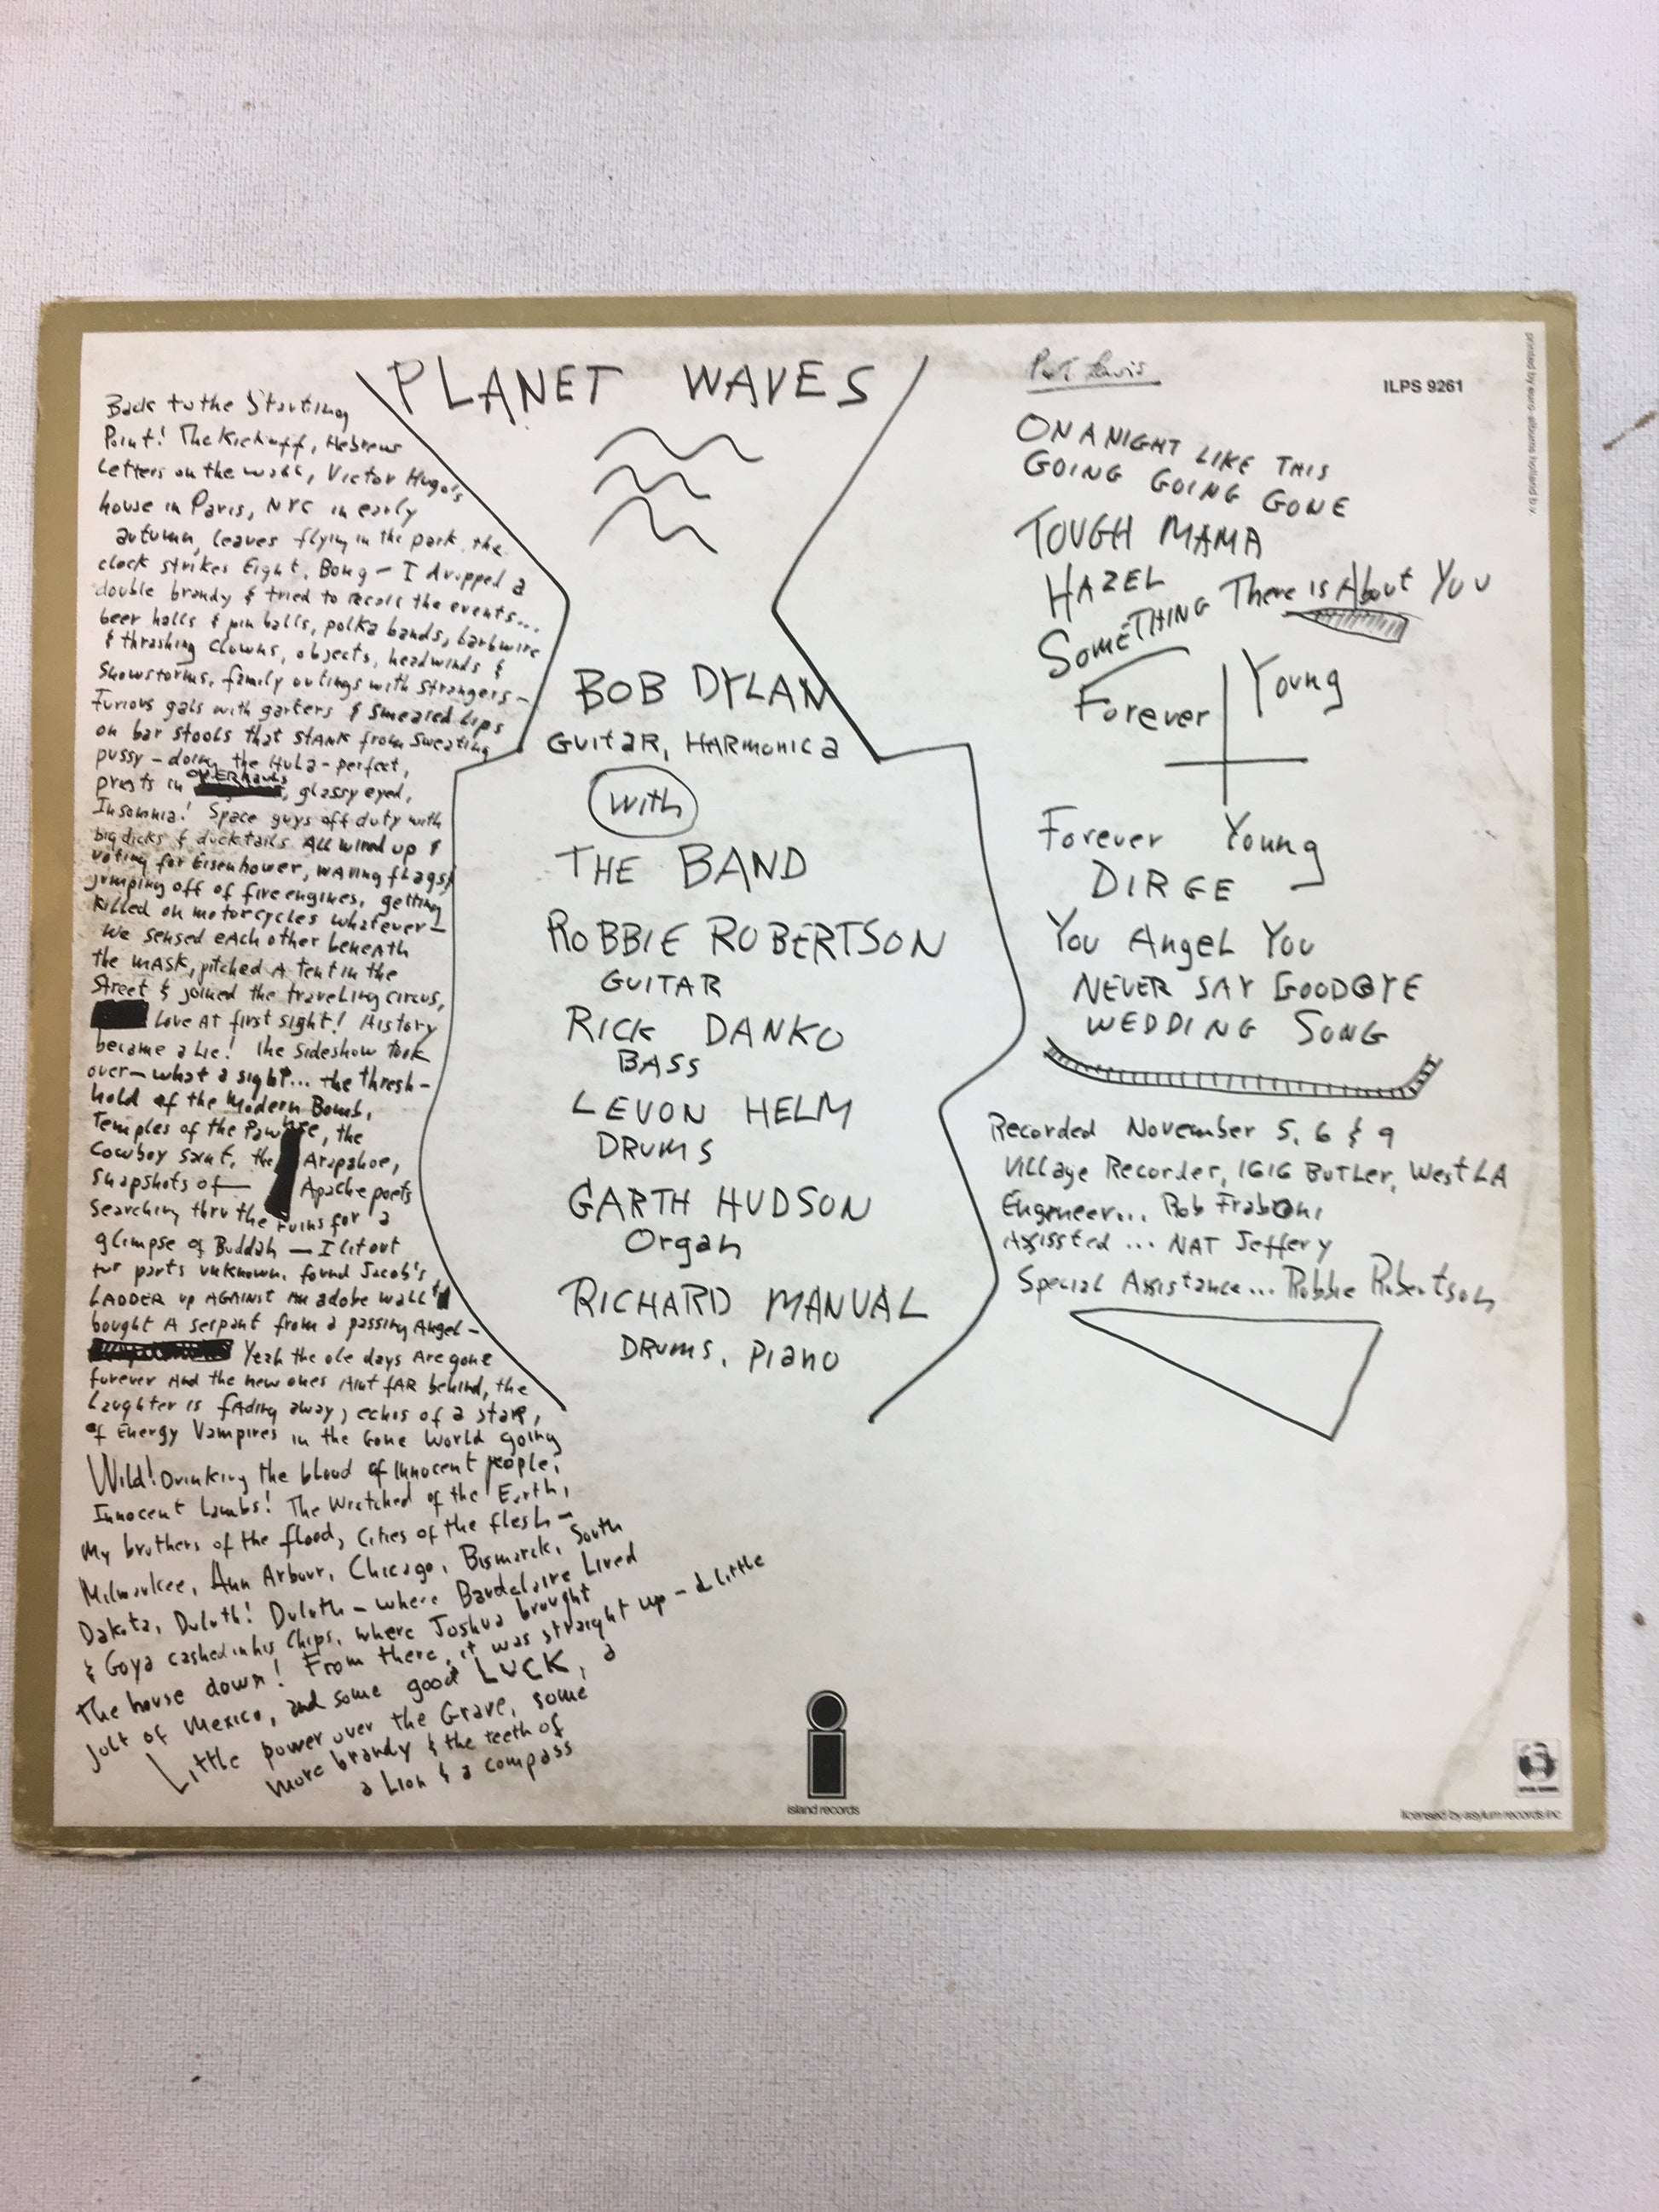 PLANET WAVES
Back to the Starting
Point! The Kickoff, Hebrew
Letters on the wall, Victor Hugo's
house in Paris, NYC in early
autumn, leaves flying in the park, the
clock strikes Eight, Bong - I dropped a
double brandy & tried to recall the events...
beer halls & pin balls, polka bands, barbwire
& thrashing clowns, objects, headwinds &
Snowstorms, family outings with strangers -
Furious gals with garters & smeared Lips
on bar stools that stank from sweating
pussy - doing the Hula - perfect,
priests in OVERhauls, glassy eyed,
Insomnia! Space guys off duty with
big dicks & ducktails All wired up &
voting for Eisenhower, waving flags &
jumping off of fire engines, getting
killed on motorcycles whatever -
We sensed each other beneath
the MASK, pitched A tent in the
Street & joined the traveling circus,
Love AT first sight! History
became a Lie! the sideshow took
over - what a sight... the thresh-
hold of the Modern Bomb,
Temples of the Pawnee, the
Cowboy Saint, the Arapahoe,
snapshots of - Apache poets
searching thru the ruins for a
glimpse of Buddah - I lit out
for parts unknown, found Jacob's
LADDER up AGAINST AN adobe wall &
bought A serpent from a passing Angel -
Yeah the ole days Are gone
forever And the new ones Aint fAR behind, the
Laughter is fAding away, echos of a star,
of Energy Vampires in the Gone World going
Wild! Drinking the blood of Innocent people,
Innocent Lambs! The Wretched of the Earth,
My brothers of the flood, Cities of the flesh -
Milwaukee, Ann Arbour, Chicago, Bismarck, South
Dakota, Duluth! Duluth - where Baudelaire Lived
& Goya cashed in his Chips, where Joshua brought
The house down! From there, it was straight up - a Little
jolt of Mexico, and some good LUCK, a
Little power over the Grave, some
more brandy & the teeth of
a Lion & a compass
BOB DYLAN
GUITAR, HARMONICA
with
THE BAND
ROBBIE ROBERTSON
GUITAR
RICK DANKO
BASS
LEVON HELM
DRUMS
GARTH HUDSON
Organ
RICHARD MANUAL
DRUMS, PIANO
island records
ILPS 9261
printed by euro-albums holland b.v.
ON A NIGHT LIKE THIS
GOING GOING GONE
TOUGH MAMA
HAZEL
SOMETHING There is About You
Forever Young
Forever Young
DIRGE
You Angel You
NEVER SAY GOODBYE
WEDDING SONG
Recorded November 5, 6 & 9
Village Recorder, 1616 Butler, West LA
Engineer... Rob Fraboni
Assissted ... NAT Jeffery
Special Assistance... Robbie Robertson
licensed by asylum records inc